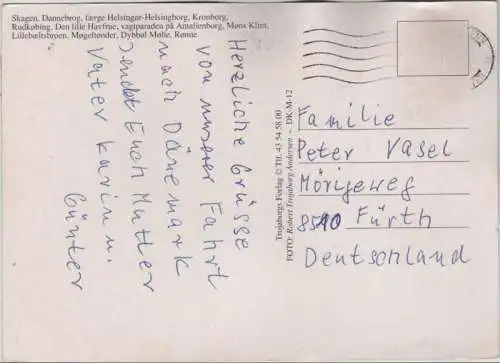 Skagen, Dannebrog, færge Helsingør-Helsingborg, Kronborg,
Rudkøbing, Den lille Havfrue, vagtparaden på Amalienborg, Møns Klint,
Lillebæltsbroen, Møgeltønder, Dybbøl Mølle, Rønne
Herzliche Grüsse
von unserer Fahrt
nach Dänemark
sendet Euch Mutter
Vater Karin u.
Günter
Trojaborgs Forlag © Tlf. 43 54 58 00
FOTO: Robert Trojaborg Andersen – DK-M-12
Familie
Peter Vasel
Mörikeweg
8510 Fürth
Deutschland